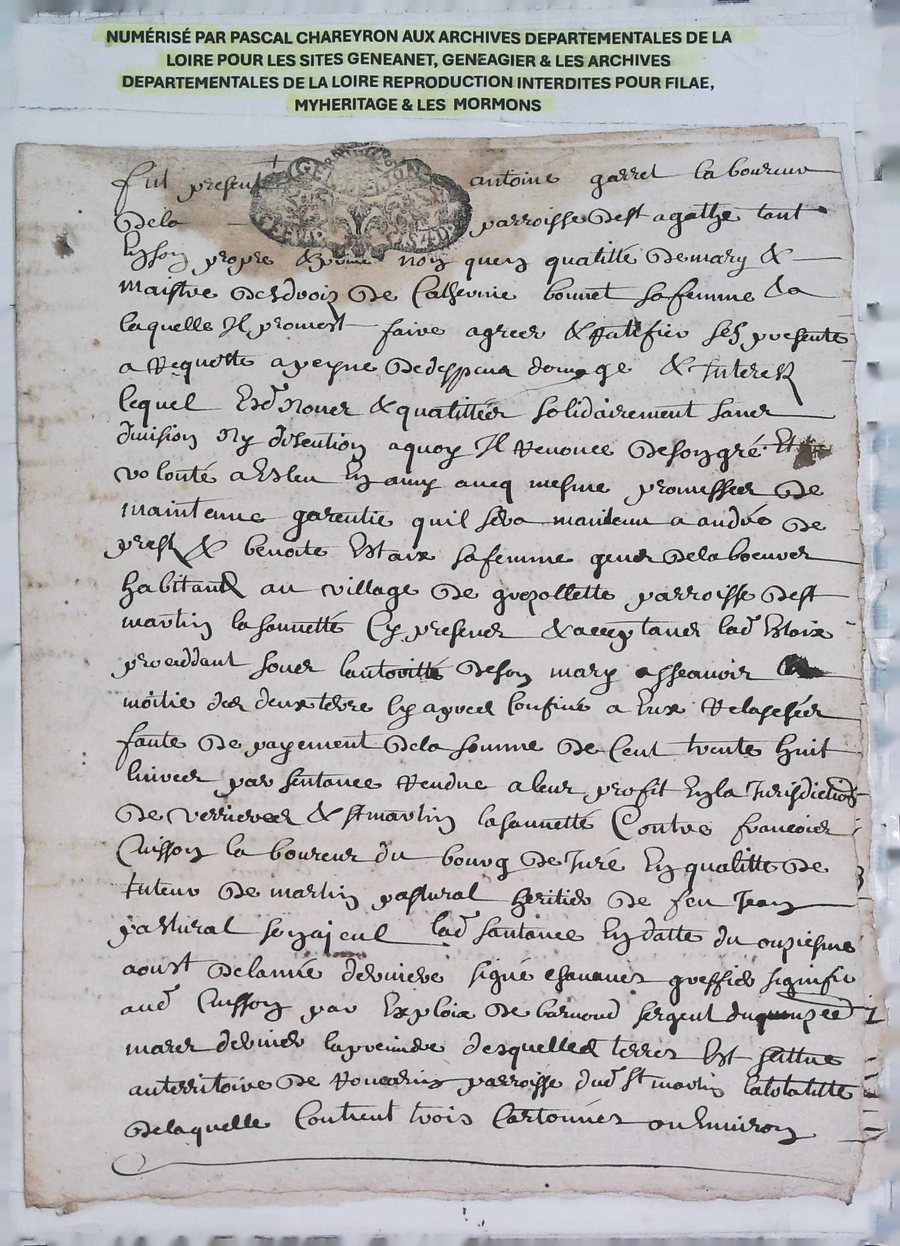 NUMÉRISÉ PAR PASCAL CHAREYRON AUX ARCHIVES DEPARTEMENTALES DE LA
LOIRE POUR LES SITES GENEANET, GENEAGIER & LES ARCHIVES
DEPARTEMENTALES DE LA LOIRE REPRODUCTION INTERDITES POUR FILAE,
MYHERITAGE & LES MORMONS
fut present antoine garret laboureur
de la parroisse de st agathe tant
en son propre & prive nom quen qualitté de mary &
maistre des drois de Catherine bonnet sa femme & a
laquelle Il promest faire agreer & Ratifier ses presente
a Requeste a peyne de despeur domage & Interest
lequel Esd Noner & qualittéer solidairement saner
division Ny disention a quoy Il Renonce de son gré Et
volonté a
maintenue garentie quil sera a andré de
prest & benoite sa femme gener de labeuver
habitant au village de parroisse de st
martin lasauvetté Cy presener & acceptaner lad
procéddant souer lautoritté de son mary asseavoir
moitié der deux terre cy apreer Confiné a Eux Relaschéer
faute de payement de la somme de Cent trente huit
livreer par sentance Rendue a leur profit En la Jurisdiction
de verriereer & st martin lasauvetté Contre francoier
laboureur du bourg de Juré En qualitté de
tuteur de martin pastural heritier de feu Jean
pastural son ajeul lad santance En datte du onziesme
aoust de lannée derniere signé greffier signifié
aud par Exploix de sergent du
marer dernier la premiere desquelleer terres Est scittue
au territoire de parroisse dud St martin la totalitté
de laquelle Contient trois Cartonnéer ou Environ